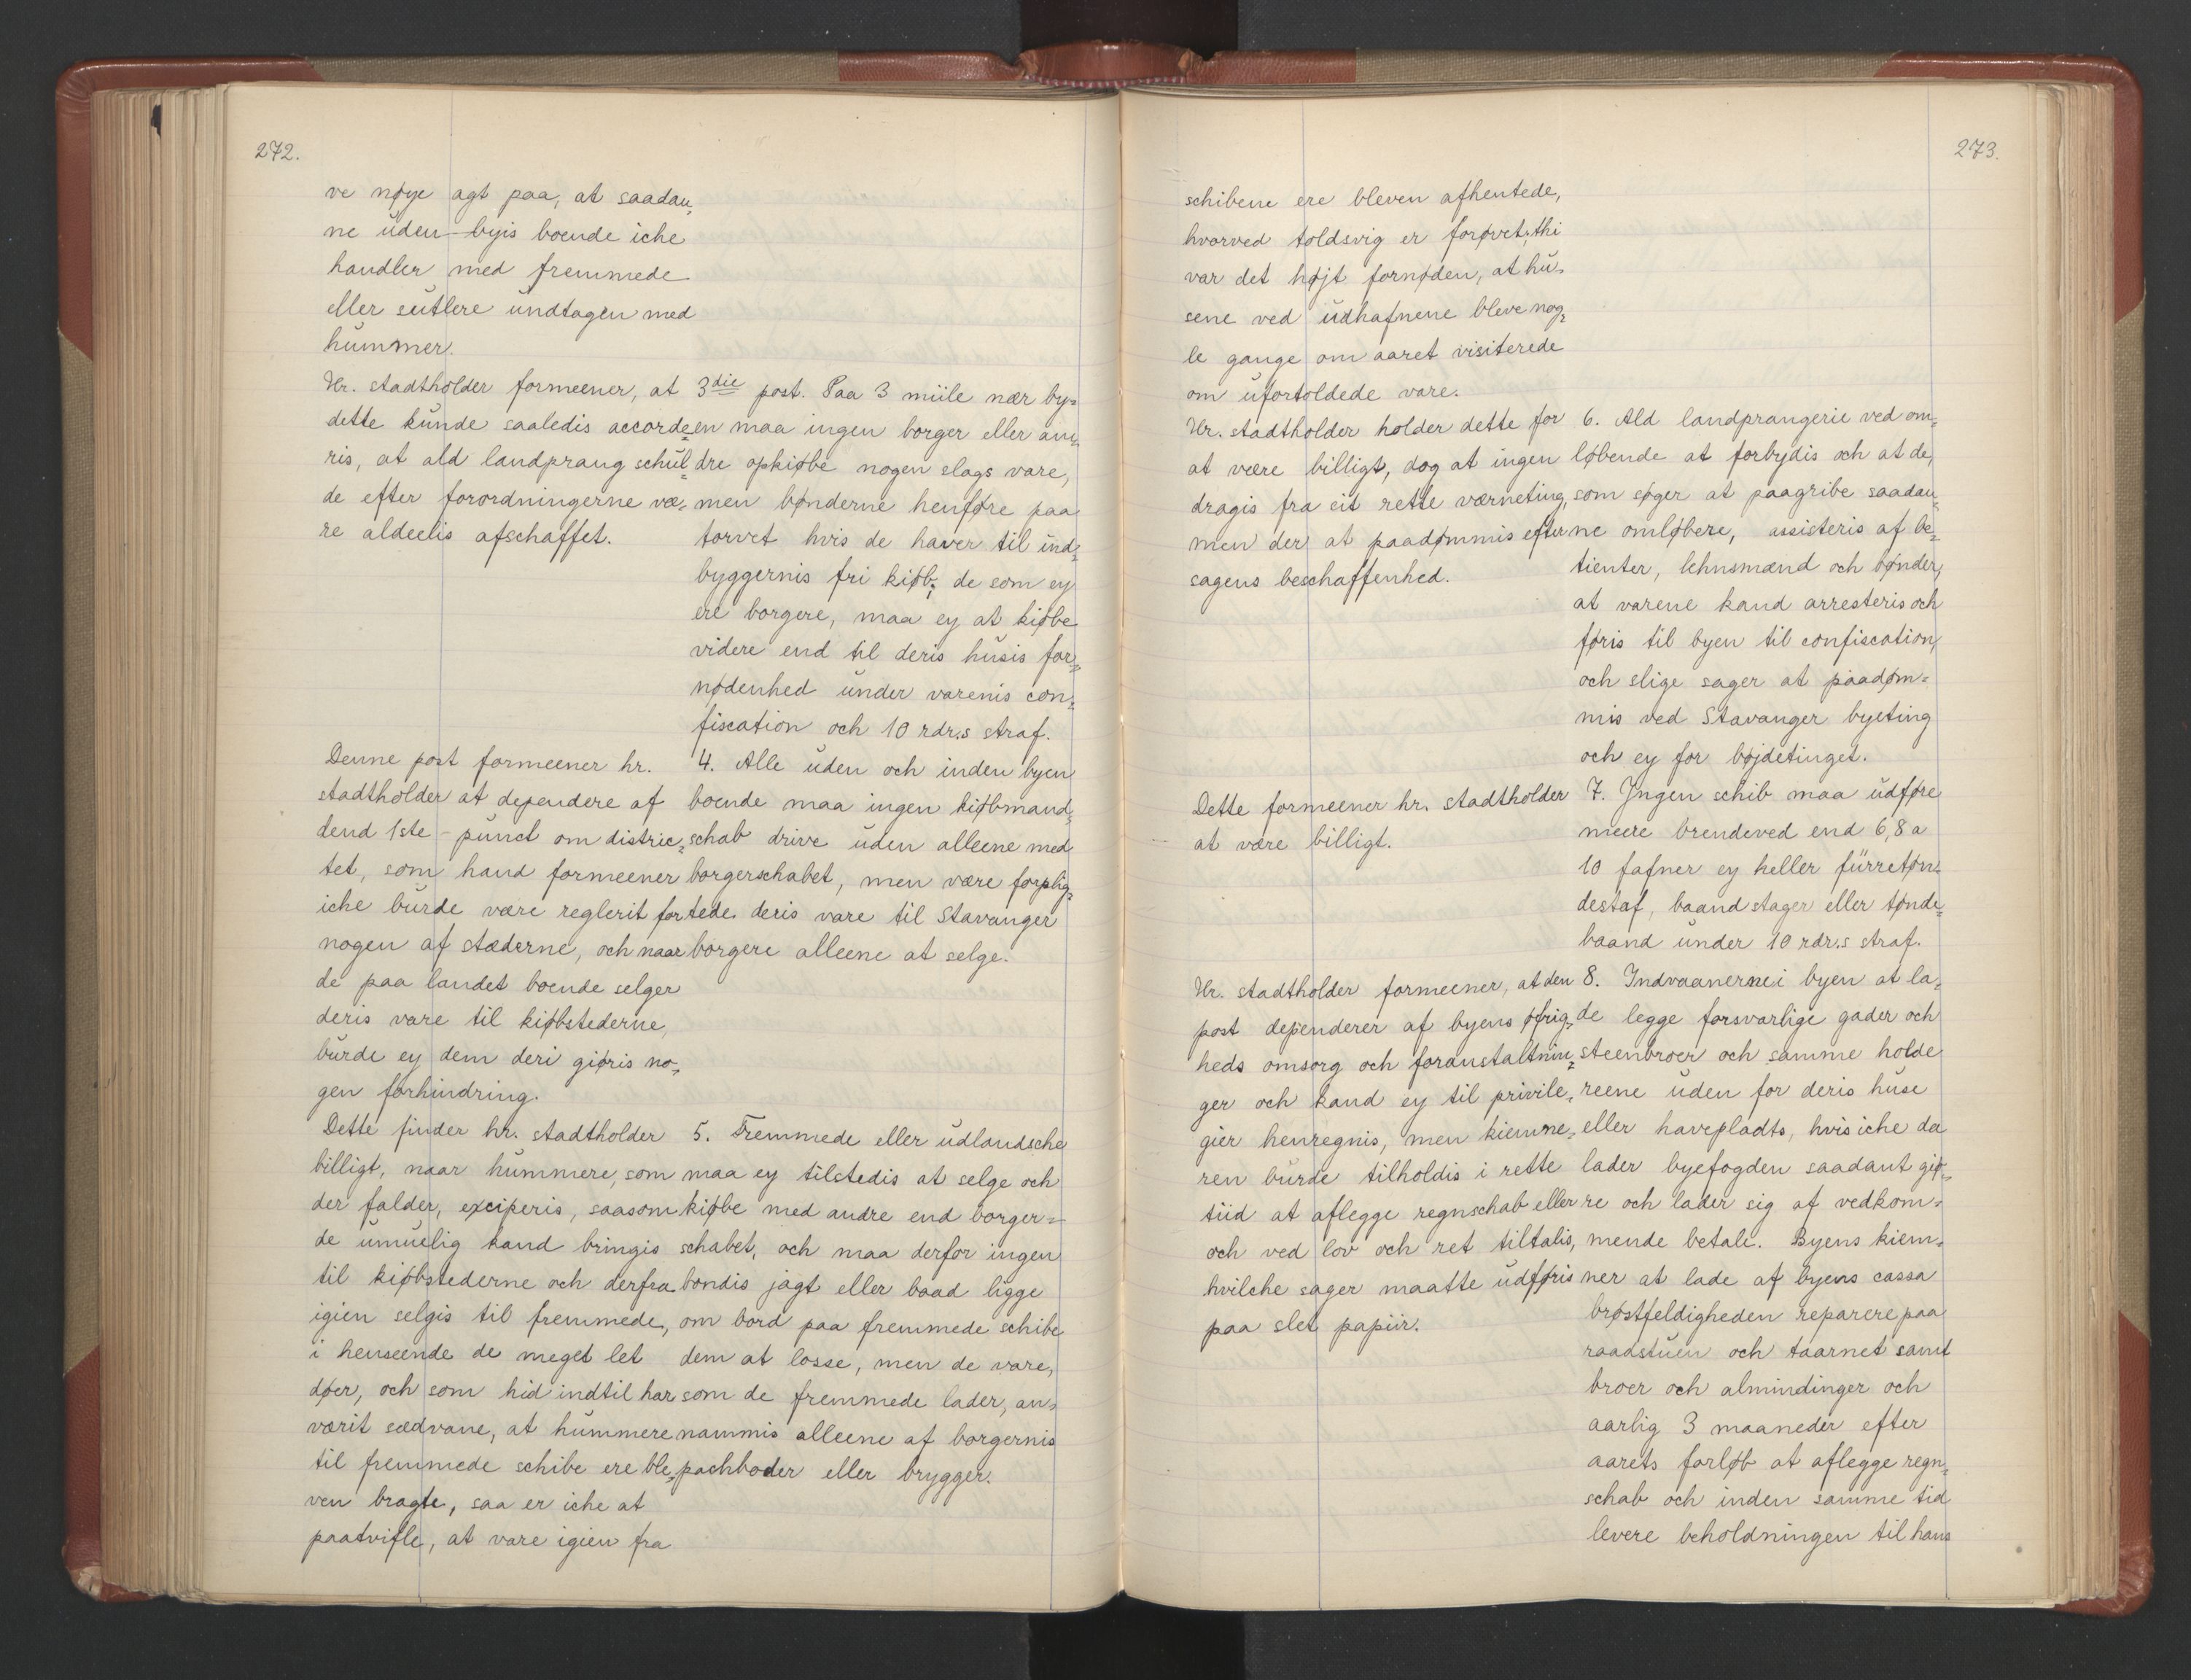 272.
ve nøye agt paa, at saadan„
ne uden byis boende iche
handler med fremmede
eller sutlere undtagen med
hummer.
Hr. stadtholder formeener, at
dette kunde saaledis accorde„
ris, at ald landprang schul„
de efter forordningerne væ„
re aldeelis afschaffet.
3die post. Paa 3 miile nær by„
en maa ingen borger eller an„
dre opkiøbe nogen slags vare,
men bønderne henføre paa
torvet hvis de haver til ind„
byggernis fri kiøb; de som ey
ere borgere, maa ey at kiøbe
videre end til deris husis for„
nødenhed under varenis con„
fiscation och 10 rdr.s straf.
Denne post formeener hr.
stadtholder at dependere af
dend 1ste punct om distric„
tet, som hand formeener
iche burde være reglerit for
nogen af stæderne, och naar
de paa landet boende selger
deris vare til kiøbstederne,
burde ey dem deri giøris no„
gen forhindring.
4. Alle uden och inden byen
boende maa ingen kiøbmand„
schab drive uden alleene med
borgerschabet, men være forplig„
tede deris vare til Stavanger
borgere alleene at selge.
Dette finder hr. stadtholder
billigt, naar hummere, som
der falder, exciperis, saasom
de umuelig kand bringis
til kiøbstederne och derfra
igien selgis til fremmede,
i henseende de meget let
døer, och som hid indtil har
værit sædvane, at hummere
til fremmede schibe ere ble„
ven bragte, saa er iche at
paatvifle, at vare igien fra
5. Fremmede eller udlandsche
maa ey tilstedis at selge och
kiøbe med andre end borger„
schabet, och maa derfor ingen
bondis jagt eller baad ligge
om bord paa fremmede schibe
dem at losse, men de vare,
som de fremmede lader, an„
nammis alleene af borgernis
pachboder eller brygger.
273.
schibene ere bleven afhentede,
hvorved toldsvig er forøvet; thi
var det højt fornøden, at hu„
sene ved udhafnene bleve nog„
le gange om aaret visiterede
om ufortoldede vare.
Hr. stadtholder holder dette for
at være billigt, dog at ingen
dragis fra sit rette værneting,
men der at paadømmis efter
sagens beschaffenhed.
6. Ald landprangerie ved om„
løbende at forbydis och at de,
som søger at paagribe saadan„
ne omløbere, assisteris af be„
tienter, lehnsmænd och bønder,
at varene kand arresteris och
føris til byen til confiscation,
och slige sager at paadøm„
mis ved Stavanger byeting
och ey for bøjdetinget.
Dette formeener hr. stadtholder
at være billigt.
7. Ingen schib maa udføre
meere brendeved end 6, 8 a
10 fafner ey heller fürretøn„
destaf, baandstager eller tønde„
baand under 10 rdr.s straf.
Hr. stadtholder formeener, at den
post dependerer af byens øfrig„
heds omsorg och foranstaltnin„
ger och kand ey til privile„
gier henregnis, men kiemne„
ren burde tilholdis i rette
tiid at aflegge regnschab eller
och ved lov och ret tiltalis,
hvilche sager maatte udføris
paa slet papiir.
8. Indvaanerne i byen at la„
de legge forsvarlige gader och
steenbroer och samme holde
reene uden for deris huse
eller havepladts, hvis iche da
lader byefogden saadant giø„
re och lader sig af vedkom„
mende betale. Byens kiem„
ner at lade af byens cassa
brøstfeldigheden reparere paa
raadstuen och taarnet samt
broer och almindinger och
aarlig 3 maaneder efter
aarets forløb at aflegge regn„
schab och inden samme tid
levere beholdningen til hans